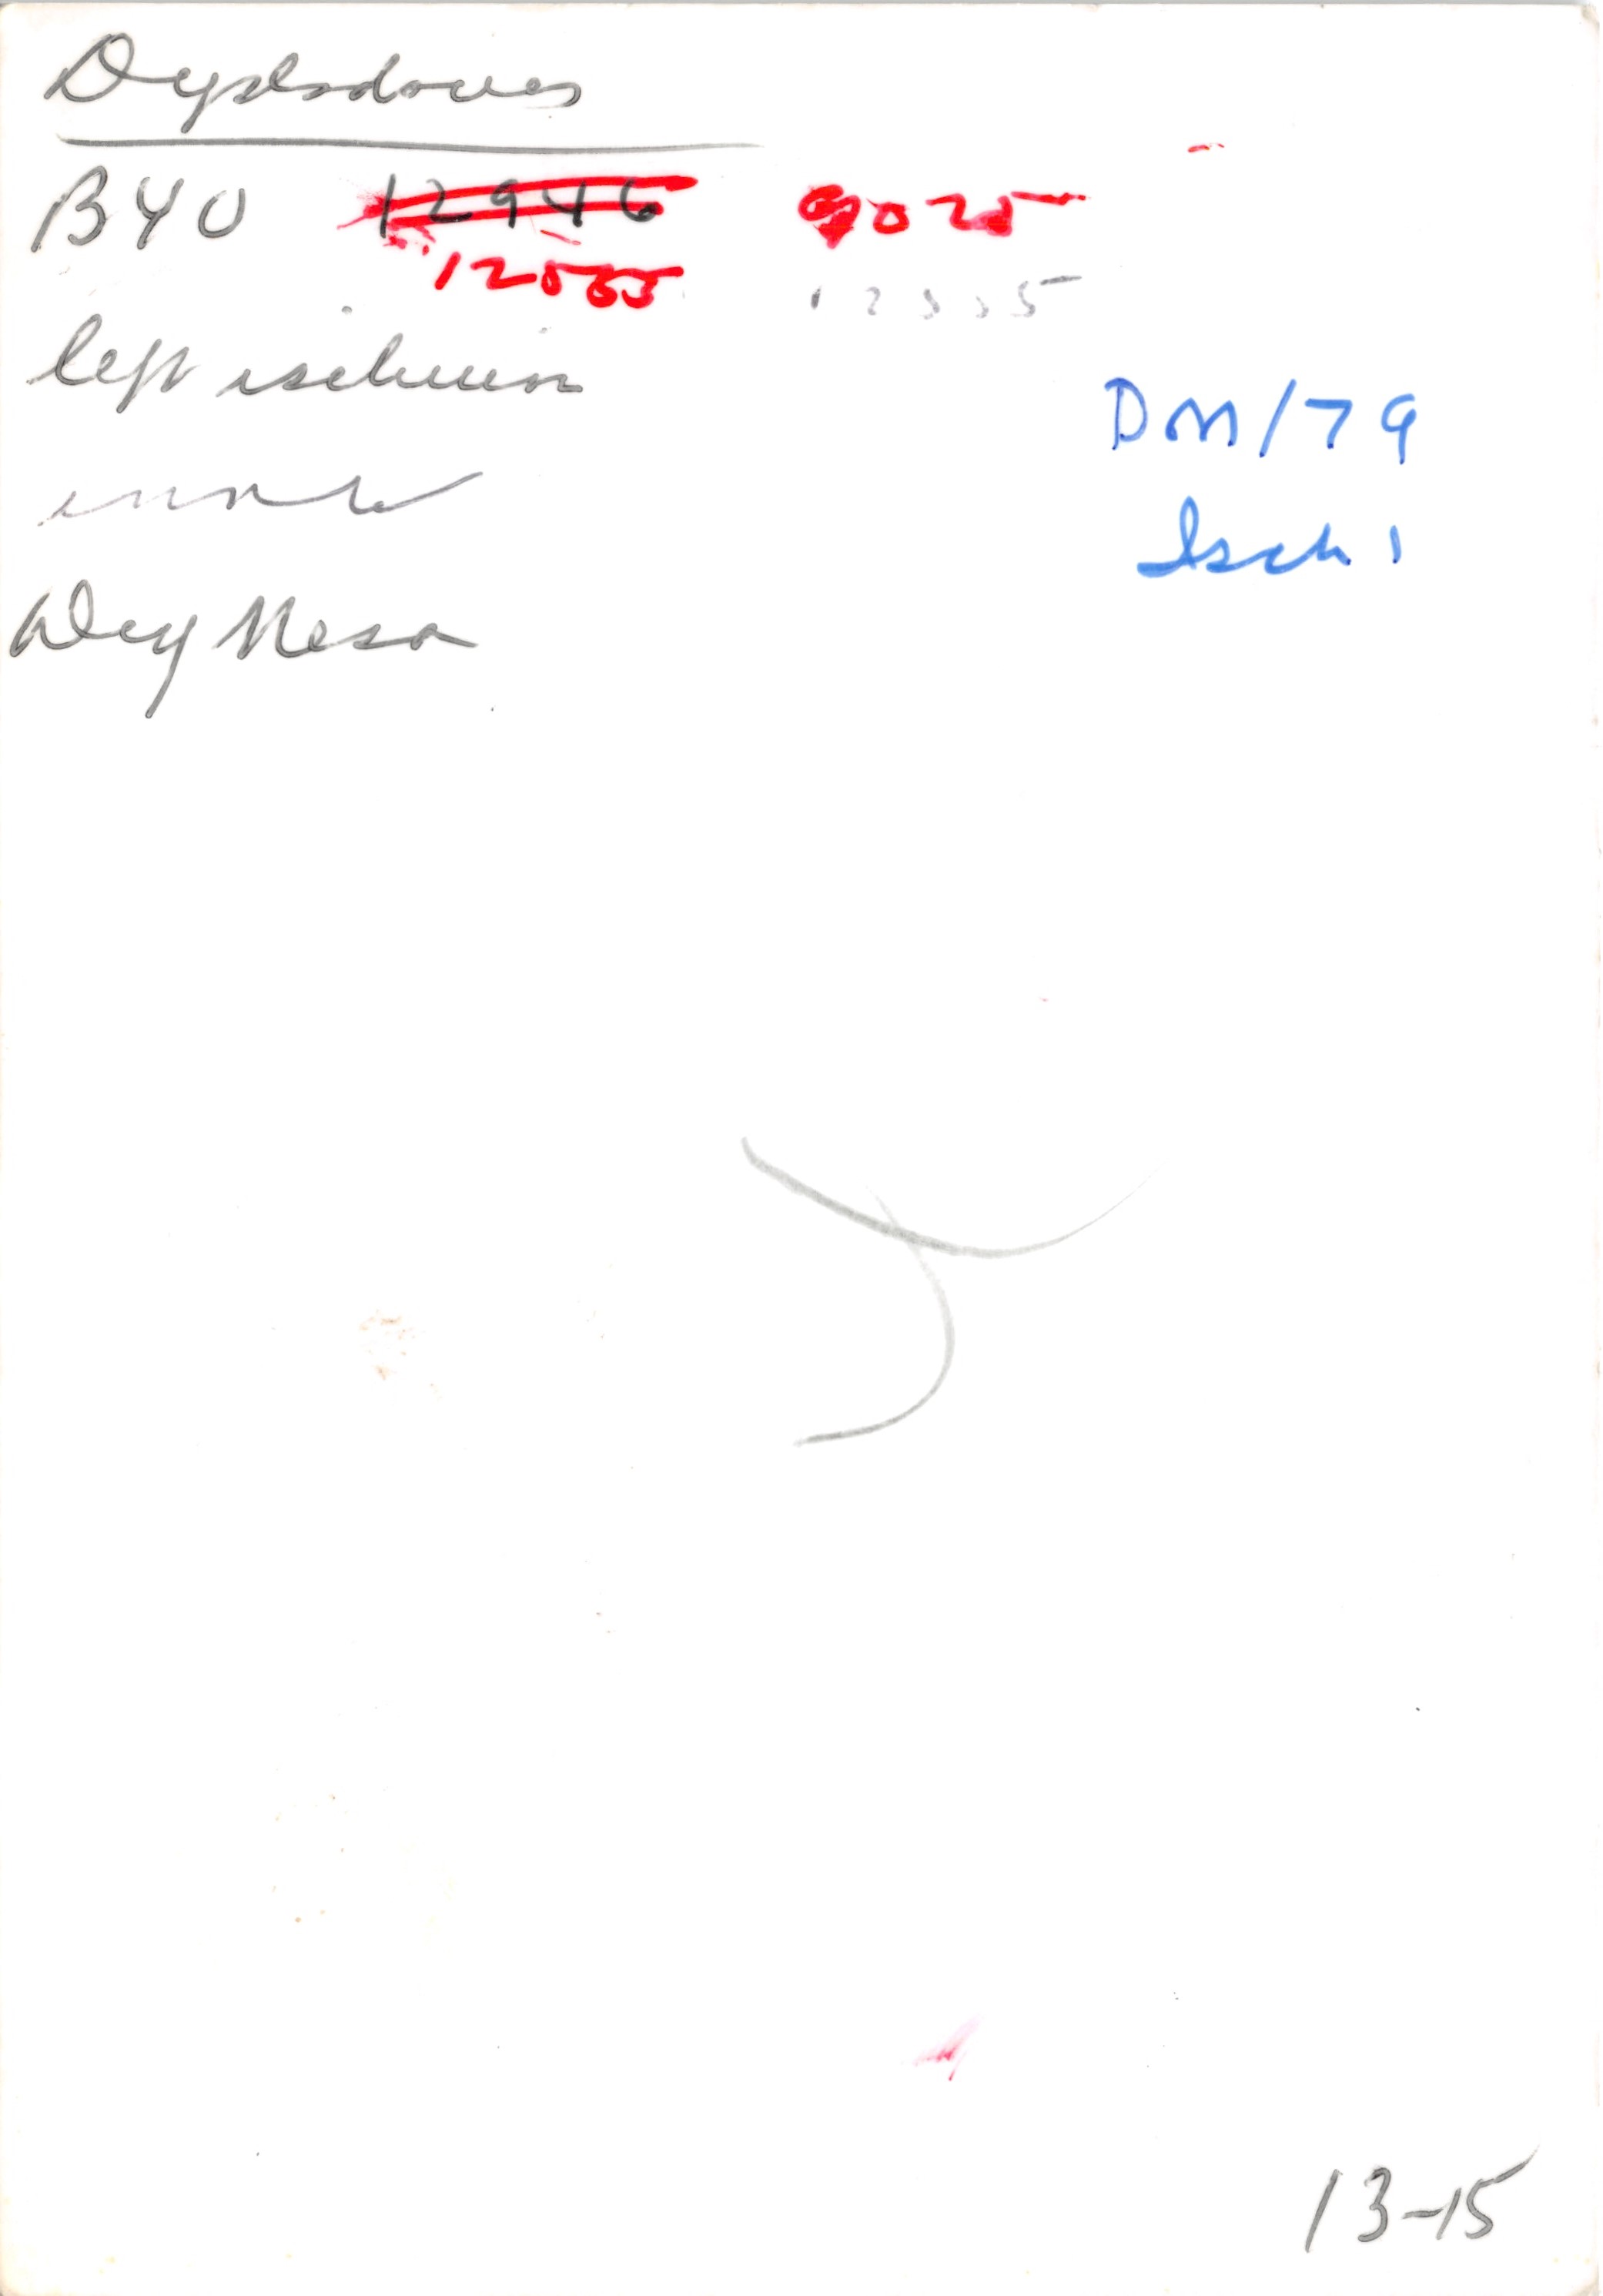 Dyplodocus
BYU 12946 9025
12555 12555
left ischium
inner
Dry Mesa
DM/79
Isch 1
13-15